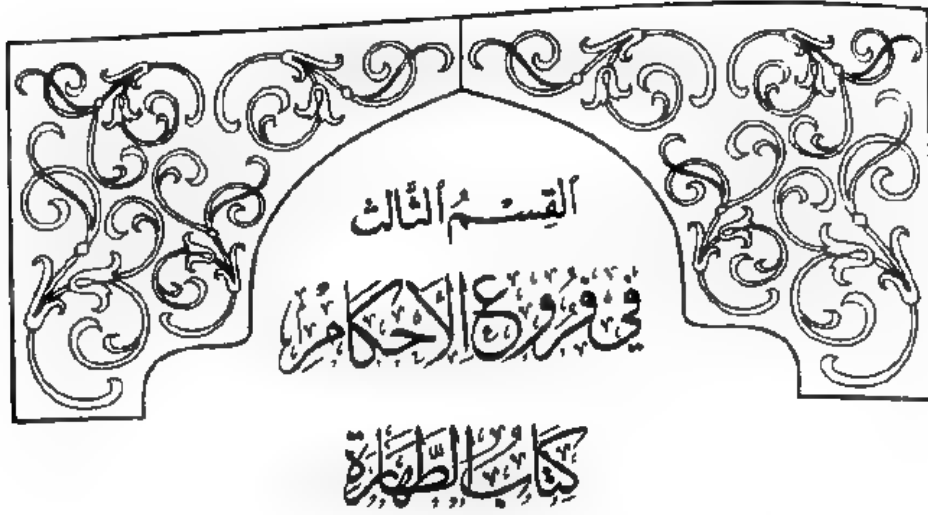 ٱلقِسْمُ ٱلثَّالث
في فروع الأحكام
كتاب الطهارة